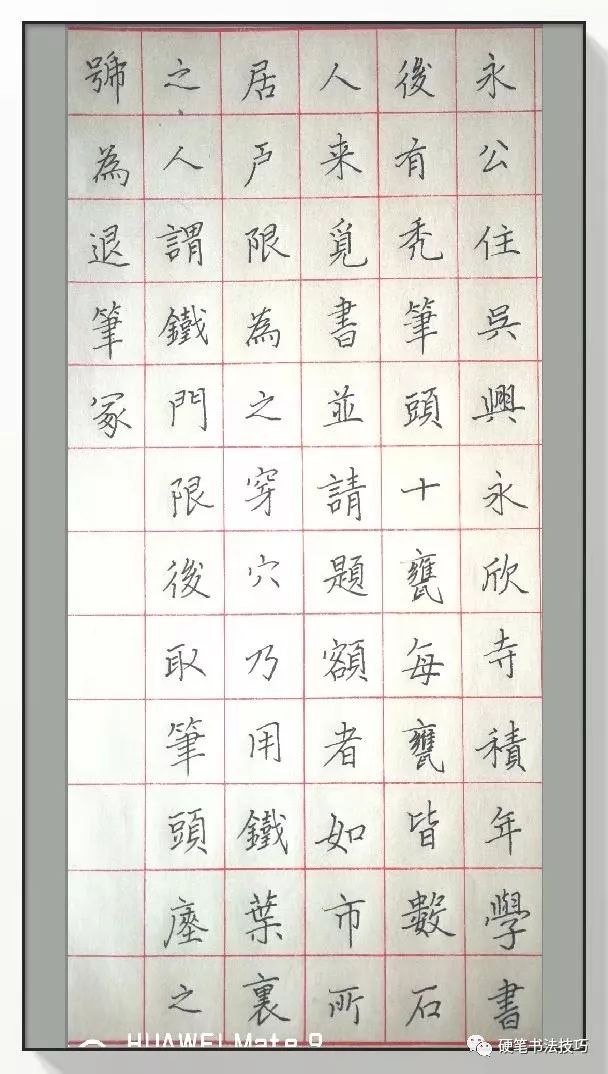 永公住吳興永欣寺積年學書
後有禿筆頭十甕每甕皆數石
人来覓書並請題額者如市所
居戶限為之穿穴乃用鐵葉裹
之人謂鐵門限後取筆頭瘞之
號為退筆冢
HUAWEI Mate 8
硬笔书法技巧